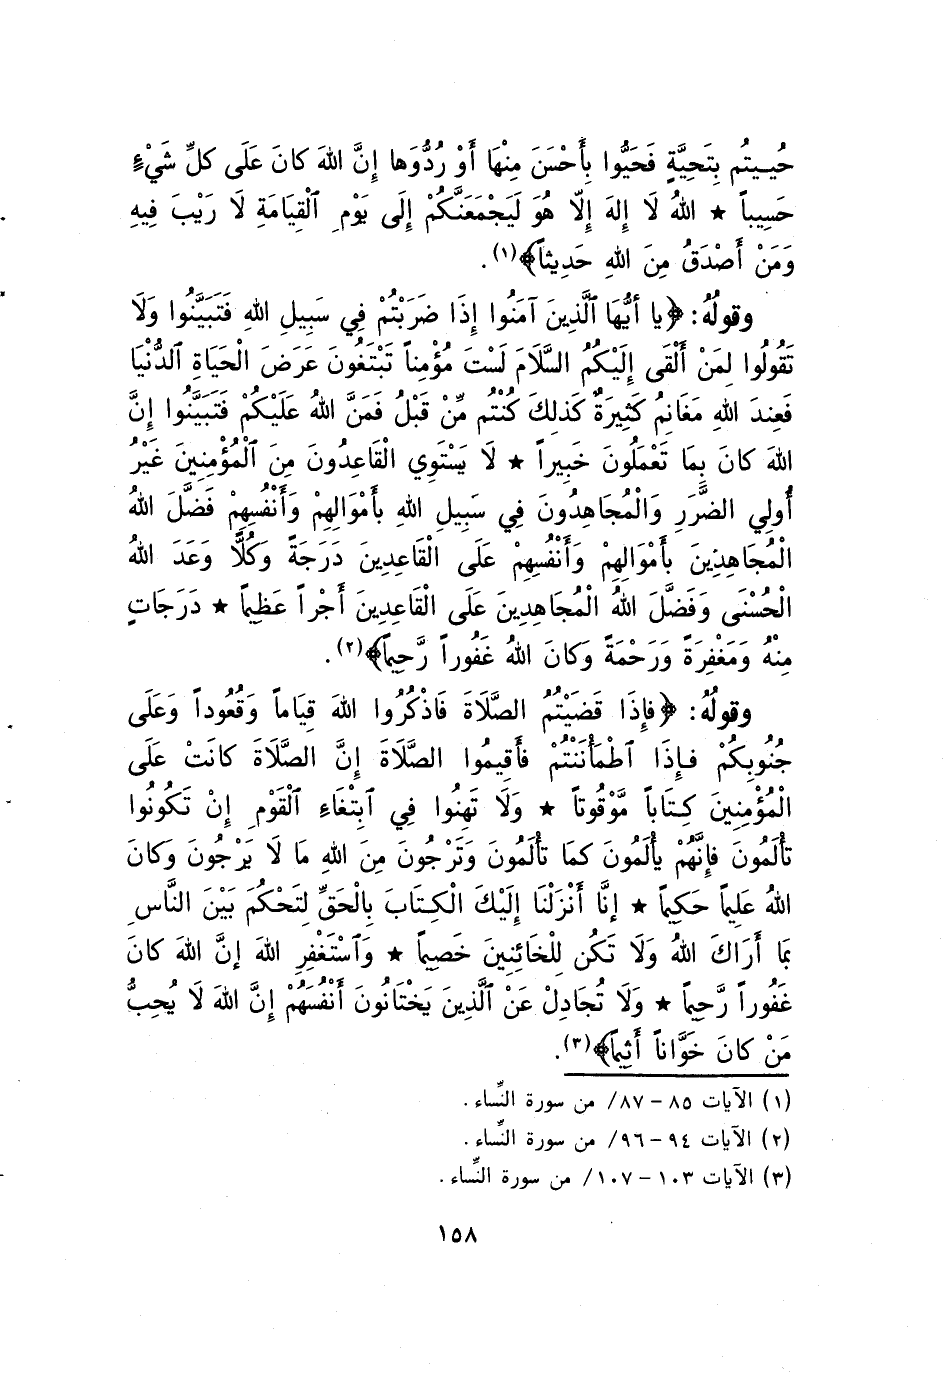 حُيـيتُم بِتَحِيَّةٍ فَحَيُّوا بِأَحْسَنَ مِنْهَا أَوْ رُدُّوَها إِنَّ اللهَ كانَ عَلَى كلِّ شَيْءٍ
حَسِيباً ★ اللهُ لَا إِلهَ إِلّا هُوَ لَيَجْمَعَنَّكُمْ إِلَى يَوْمِ ٱلْقِيَامَةِ لَا رَيْبَ فِيهِ
وَمَنْ أَصْدَقُ مِنَ اللهِ حَدِيثاً﴾(١).
وقولُهُ: ﴿يا أَيُّهَا ٱلَّذِينَ آمَنُوا إِذَا ضَرَبْتُمْ فِي سَبِيلِ اللهِ فَتَبَيَّنُوا وَلَا
تَقُولُوا لِمَنْ أَلْقَى إِلَيْكُمُ السَّلَامَ لَسْتَ مُؤْمِناً تَبْتَغُونَ عَرَضَ الْحَيَاةِ ٱلدُّنْيَا
فَعِندَ اللهِ مَغَانِمُ كَثِيرَةٌ كَذلِكَ كُنْتُم مِّنْ قَبْلُ فَمَنَّ اللهُ عَلَيْكُمْ فَتَبَيَّنُوا إِنَّ
اللهَ كانَ بِمَا تَعْمَلُونَ خَبِيراً ★ لَا يَسْتَوِي الْقَاعِدُونَ مِنَ ٱلْمُؤْمِنِينَ غَيْرُ
أُولِي الضَّرَرِ وَالْمُجَاهِدُونَ فِي سَبِيلِ اللهِ بِأَمْوَالِهِمْ وَأَنْفُسِهِمْ فَضَّلَ اللهُ
الْمُجَاهِدِينَ بِأَمْوَالِهِمْ وَأَنْفُسِهِمْ عَلَى الْقَاعِدِينَ دَرَجَةً وَكُلًّا وَعَدَ اللهُ
الْحُسْنَى وَفَضَّلَ اللهُ الْمُجَاهِدِينَ عَلَى الْقَاعِدِينَ أَجْراً عَظِيماً ★ دَرَجَاتٍ
مِنْهُ وَمَغْفِرَةً وَرَحْمَةً وَكانَ اللهُ غَفُوراً رَّحِيماً﴾(٢).
وقولُهُ: ﴿فإِذَا قَضَيْتُمُ الصَّلَاةَ فَاذْكُرُوا اللهَ قِيَاماً وَقُعُوداً وَعَلَى
جُنُوبِكُمْ فـإِذَا ٱطْمَأْنَنْتُمْ فأَقِيمُوا الصَّلَاةَ إِنَّ الصَّلَاةَ كانَتْ عَلَى
الْمُؤْمِنِينَ كِتَاباً مَّوْقُوتاً ★ وَلَا تَهِنُوا فِي ٱبْتِغَاءِ ٱلْقَوْمِ إِنْ تَكُونُوا
تأْلَمُونَ فإِنَّهُمْ يأْلَمُونَ كمَا تأْلَمُونَ وَتَرْجُونَ مِنَ اللهِ مَا لَا يَرْجُونَ وَكانَ
اللهُ عَلِيماً حَكِيماً ★ إنَّا أَنْزَلْنَا إِلَيْكَ الْكِتَابَ بِالْحَقِّ لِتَحْكُمَ بَيْنَ النَّاسِ
بِمَا أَرَاكَ اللهُ وَلَا تَكُن لِلْخَائِنِينَ خَصِيماً ★ وَٱسْتَغْفِرِ اللهَ إنَّ اللهَ كانَ
غَفُوراً رَّحِيماً ★ وَلَا تُجَادِلْ عَنْ ٱلَّذِينَ يَخْتَانُونَ أَنْفُسَهُمْ إِنَّ اللهَ لَا يُحِبُّ
مَنْ كانَ خَوَّاناً أَثِيماً﴾(٣).
(١) الآيات ٨٥ - ٨٧/ من سورة النِّساء.
(٢) الآيات ٩٤ - ٩٦/ من سورة النِّساء.
(٣) الآيات ١٠٣ - ١٠٧/ من سورة النِّساء.
١٥٨